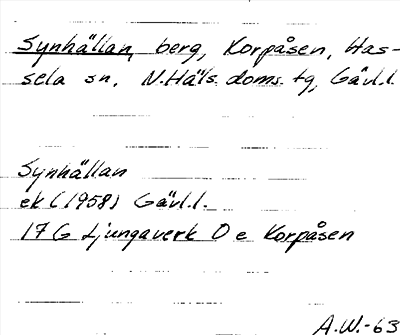 Synhällan, berg, Korpåsen, Has-
sela sn, N.Häls. doms. tg, Gävl.l.
Synhällan
ek (1958) Gävl.l.
17 G Ljungaverk O e Korpåsen
A.W.-63